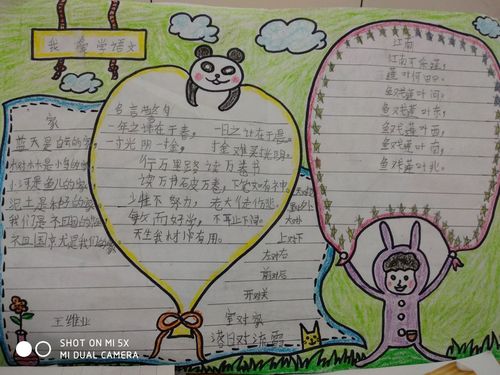 我爱学语文
家
蓝天是白云的家,
树木是小鸟的家,
小河是鱼儿的家,
泥土是种子的家,
我们是祖国的
祖国就是我们的家
王维业
名言警句
一年之计在于春, 一日之计在于晨。
一寸光阴一寸金, 寸金难买寸光阴。
行万里路 读万卷书
读万书破万卷,下笔如有神
少壮不努力, 老大徒伤悲。
敏而好学, 不耻下问。
天生我材必有用。
大对小
上对下
左对右
前对后
开对关
室对家
落日对流霞
江南
江南可采莲,
莲叶何田田。
鱼戏莲叶间。
鱼戏莲叶东,
鱼戏莲叶西,
鱼戏莲叶南,
鱼戏莲叶北。
SHOT ON MI 5X
MI DUAL CAMERA